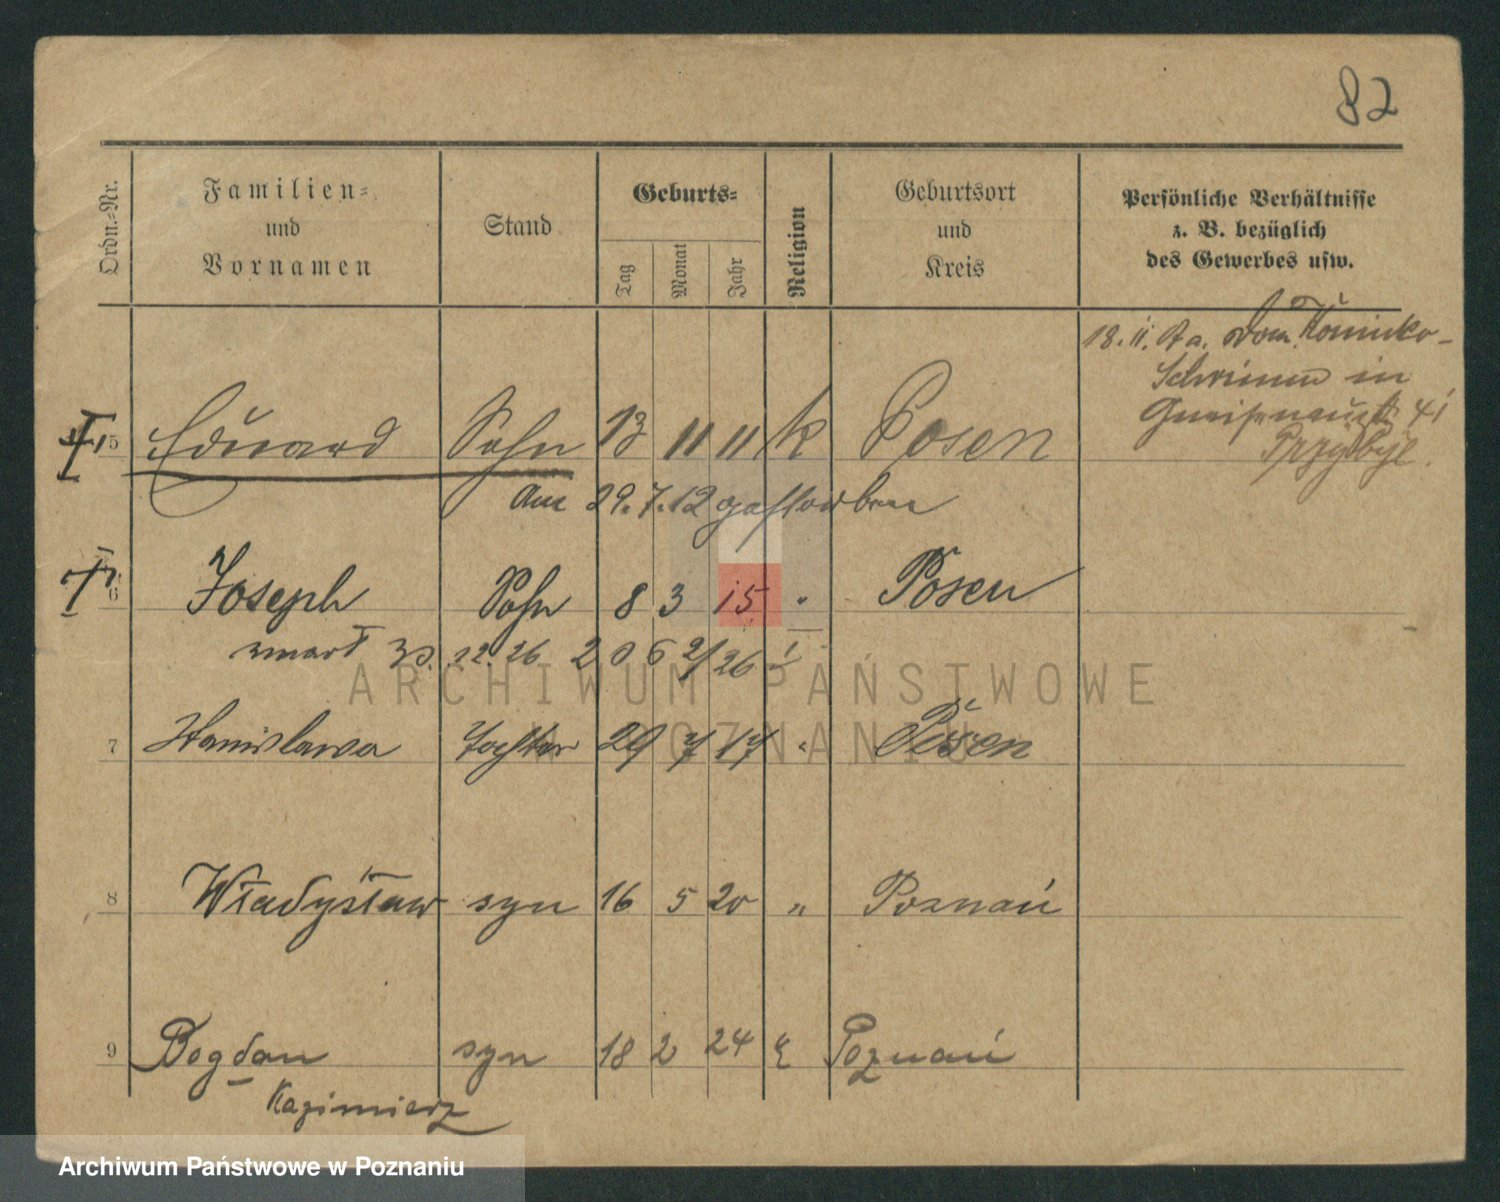 82
Ordn.=Nr.
Familien=
und
Vornamen
Stand
Geburts=
Tag
Monat
Jahr
Religion
Geburtsort
und
Kreis
Persönliche Verhältnisse
z. B. bezüglich
des Gewerbes usw.
18. 11. Dom.
in
41
Przybyl.
5 Eduard Sohn 13 11 11 k Posen
am 29.7.12 gestorben
6 Joseph Sohn 8 3 15 " Posen
zmarł 30. 12. 26
7 Stanislawa Tochter 29 7 17 " Posen
8 Władysław syn 16 5 20 " Poznań
9 Bogdan syn 18 2 24 k Poznań
Kazimierz
ARCHIWUM PAŃSTWOWE
W POZNANIU
Archiwum Państwowe w Poznaniu